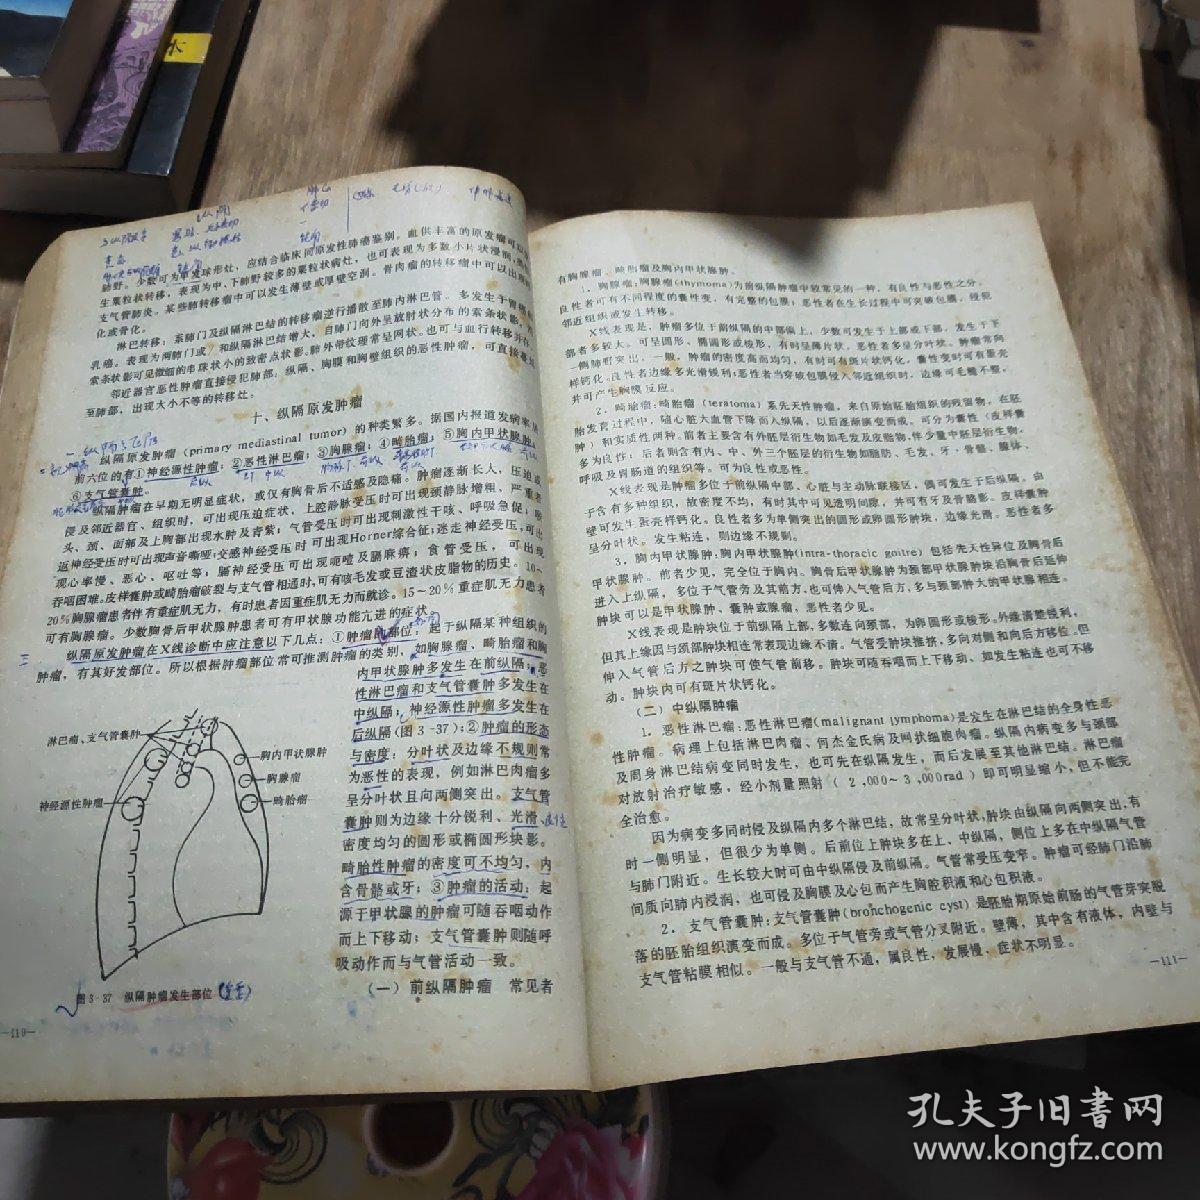 肺野。少数可为单发球形灶，应结合临床同原发性肺癌鉴别。血供丰富的原发瘤可以
生粟粒状转移，表现为中、下肺野较多的粟粒状病灶，也可表现为多数小片状浸润，
支气管肺炎。某些肺转移瘤中可以发生薄壁或厚壁空洞。骨肉瘤的转移瘤中可以出现
化或骨化。
淋巴转移：系肺门及纵隔淋巴结的转移瘤逆行播散至肺内淋巴管。多发生于胃癌
乳癌。表现为两肺门或／和纵隔淋巴结增大，自肺门向外呈放射状分布的索条状影，
索条状影可见微细的串珠状小的致密点状影。肺外带纹理常呈网状。也可与血行转移并存
邻近器官恶性肿瘤直接侵犯肺部：纵隔、胸膜和胸壁组织的恶性肿瘤，可直接蔓延
至肺部，出现大小不等的转移灶。
十、纵隔原发肿瘤
纵隔原发肿瘤（primary mediastinal tumor）的种类繁多。据国内报道发病率
前六位的有①神经源性肿瘤；②恶性淋巴瘤；③胸腺瘤；④畸胎瘤；⑤胸内甲状腺肿；
⑥支气管囊肿。
纵隔肿瘤在早期无明显症状，或仅有胸骨后不适感及隐痛。肿瘤逐渐长人，压迫或
侵及邻近器官、组织时，可出现压迫症状，上腔静脉受压时可出现颈静脉增粗，严重者
头、颈、面部及上胸部出现水肿及青紫；气管受压时可出现刺激性干咳、呼吸急促；喉
返神经受压时可出现声音嘶哑；交感神经受压时可出现Horner综合征；迷走神经受压，可出
现心率慢、恶心、呕吐等；膈神经受压可出现呃噎及膈麻痹；食管受压，可出现
吞咽困难。皮样囊肿或畸胎瘤破裂与支气管相通时，可有咳毛发或豆渣状皮脂物的历史。10～
20％胸腺瘤患者伴有重症肌无力，有时患者因重症肌无力而就诊。15～20％重症肌无力患者
可有胸腺瘤。少数胸骨后甲状腺肿患者可有甲状腺功能亢进的症状。
纵隔原发肿瘤在X线诊断中应注意以下几点：①肿瘤的部位：起于纵隔某种组织的
肿瘤，有其好发部位。所以根据肿瘤部位常可推测肿瘤的类别，如胸腺瘤、畸胎瘤和胸
内甲状腺肿多发生在前纵隔；恶
性淋巴瘤和支气管囊肿多发生在
中纵隔；神经源性肿瘤多发生在
后纵隔（图3-37）；②肿瘤的形态
与密度：分叶状及边缘不规则常
为恶性的表现，例如淋巴肉瘤多
呈分叶状且向两侧突出。支气管
囊肿则为边缘十分锐利、光滑、
密度均匀的圆形或椭圆形块影。
畸胎性肿瘤的密度可不均匀，内
含骨骼或牙；③肿瘤的活动：起
源于甲状腺的肿瘤可随吞咽动作
而上下移动；支气管囊肿则随呼
吸动作而与气管活动一致。
（一）前纵隔肿瘤 常见者
淋巴瘤、支气管囊肿
神经源性肿瘤
胸内甲状腺肿
胸腺瘤
畸胎瘤
图3-37 纵隔肿瘤发生部位
—110—
有胸腺瘤、畸胎瘤及胸内甲状腺肿。
1．胸腺瘤：胸腺瘤（thymoma）为前纵隔肿瘤中较常见的一种，有良性与恶性之分。
良性者可有不同程度的囊性变，有完整的包膜；恶性者在生长过程中可突破包膜，侵犯
邻近组织或发生转移。
X线表现是，肿瘤多位于前纵隔的中部偏上，少数可发生于上部或下部，发生于下
部者多较大。可呈圆形、椭圆形或梭形，有时呈薄片状。恶性者多呈分叶状。肿瘤常向
一侧肺野突出，一般，肿瘤的密度高而均匀，有时可有斑片状钙化，囊性变时可有蛋壳
样钙化。良性者边缘多光滑锐利；恶性者当穿破包膜侵入邻近组织时，边缘可毛糙不整，
并可产生胸膜反应。
2．畸胎瘤：畸胎瘤（teratoma）系先天性肿瘤，来自原始胚胎组织的残留物，在胚
胎发育过程中，随心脏大血管下降而入纵隔，以后逐渐演变而成。可分为囊性（皮样囊
肿）和实质性两种。前者主要含有外胚层衍生物如毛发及皮脂物，伴少量中胚层衍生物，
多为良性；后者则含有内、中、外三个胚层的衍生物如脂肪、毛发、牙、骨骼、腺体、
呼吸及胃肠道的组织等。可为良性或恶性。
X线表现是肿瘤多位于前纵隔中部、心脏与主动脉联接区，偶可发生于后纵隔。由
于含有多种组织，故密度不均，有时其中可见透明间隙，并可有牙及骨骼影。皮样囊肿
壁可发生蛋壳样钙化。良性者多为单侧突出的圆形或卵圆形肿块，边缘光滑。恶性者多
呈分叶状。发生粘连，则边缘不规则。
3．胸内甲状腺肿：胸内甲状腺肿（intra-thoracic goitre）包括先天性异位及胸骨后
甲状腺肿。前者少见，完全位于胸内。胸骨后甲状腺肿为颈部甲状腺肿块沿胸骨后延伸
进入上纵隔，多位于气管旁及其前方，也可伸入气管后方，多与颈部肿大的甲状腺相连。
肿块可以是甲状腺肿、囊肿或腺瘤，恶性者少见。
X线表现是肿块位于前纵隔上部，多数连向颈部，为卵圆形或梭形。外缘清楚锐利，
但其上缘因与颈部肿块相连常表现边缘不清。气管受肿块推挤，多向对侧和向后方移位。但
伸入气管后方之肿块可使气管前移。肿块可随吞咽而上下移动，如发生粘连也可不移
动。肿块内可有斑片状钙化。
（二）中纵隔肿瘤
1．恶性淋巴瘤：恶性淋巴瘤（malignant lymphoma）是发生在淋巴结的全身性恶
性肿瘤。病理上包括淋巴肉瘤、何杰金氏病及网状细胞肉瘤。纵隔内病变多与颈部
及周身淋巴结病变同时发生，也可先在纵隔发生，而后发展至其他淋巴结。淋巴瘤
对放射治疗敏感，经小剂量照射（2,000～3,000rad）即可明显缩小，但不能完
全治愈。
因为病变多同时侵及纵隔内多个淋巴结，故常呈分叶状，肿块由纵隔向两侧突出，有
时一侧明显，但很少为单侧。后前位上肿块多在上、中纵隔，侧位上多在中纵隔气管
与肺门附近。生长较大时可由中纵隔侵及前纵隔。气管常受压变窄。肿瘤可经肺门沿肺
间质向肺内浸润，也可侵及胸膜及心包而产生胸腔积液和心包积液。
2．支气管囊肿：支气管囊肿（bronchogenic cyst）是胚胎期原始前肠的气管芽突脱
落的胚胎组织演变而成。多位于气管旁或气管分叉附近。壁薄，其中含有液体，内壁与
支气管粘膜相似。一般与支气管不通，属良性，发展慢，症状不明显。
—111—
孔夫子旧书网
www.kongfz.com